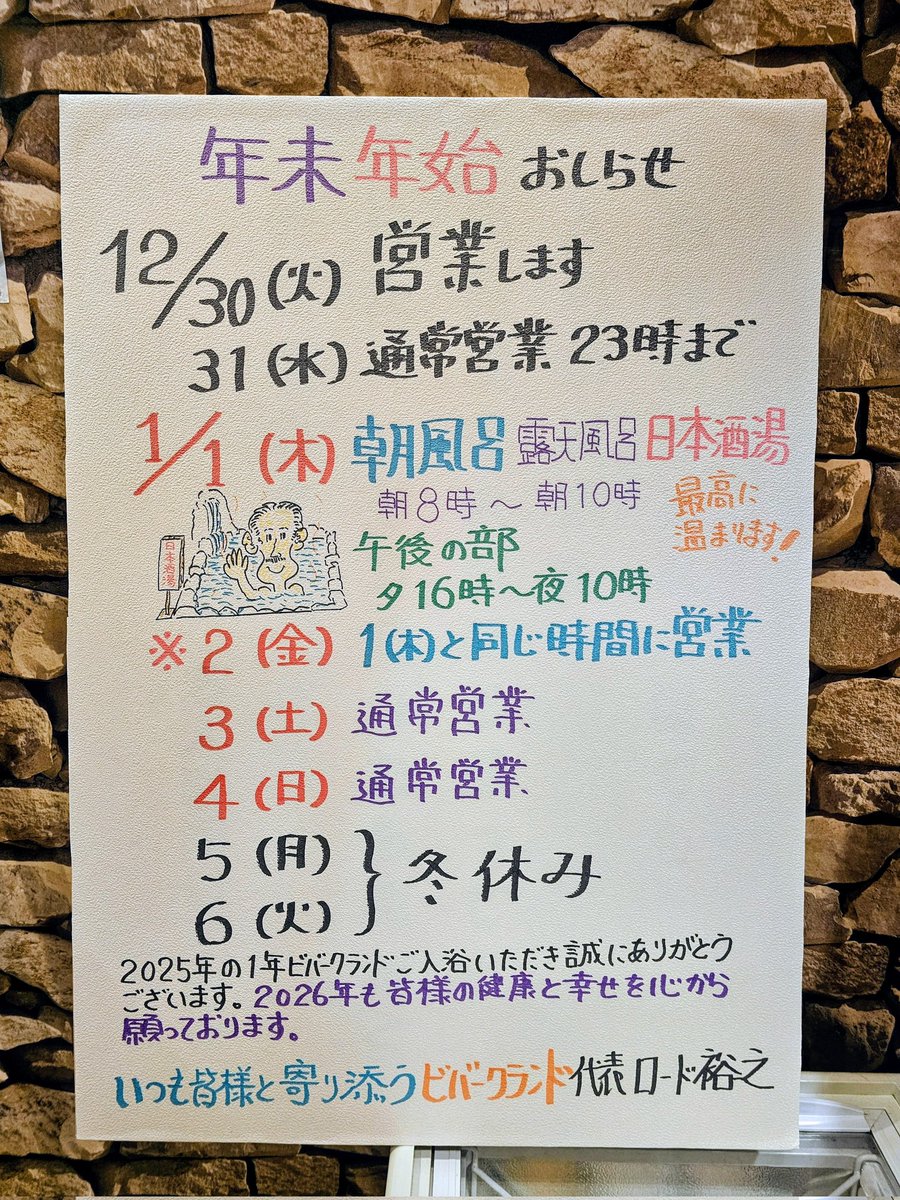 年末年始 おしらせ
12/30(火) 営業します
31(水) 通常営業 23時まで
1/1(木) 朝風呂 露天風呂 日本酒湯
朝8時〜朝10時
最高に
温まります!
日本酒湯
午後の部
夕16時〜夜10時
※2(金) 1(木)と同じ時間に営業
3(土) 通常営業
4(日) 通常営業
5(月)
6(火) } 冬休み
2025年の1年ビバークランドご入浴いただき誠にありがとう
ございます。2026年も皆様の健康と幸せを心から
願っております。
いつも皆様と寄り添うビバークランド代表ロード裕之